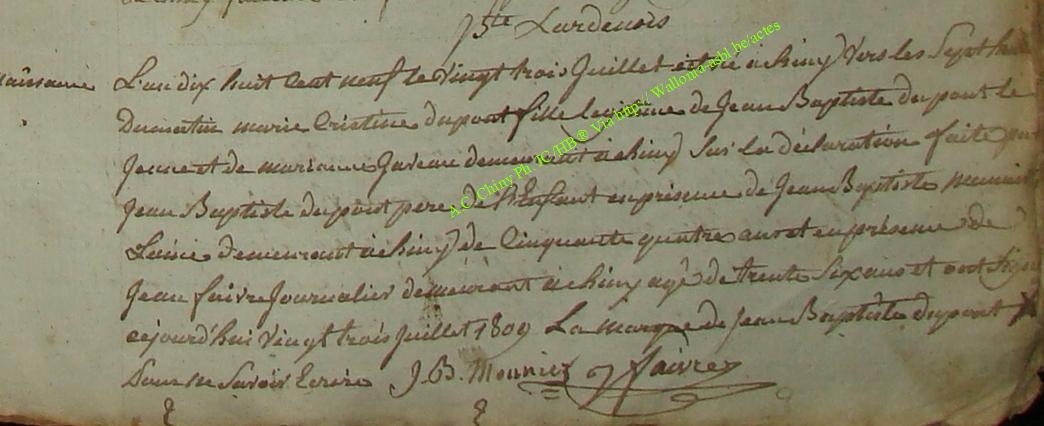 Jste Lardenois
Naissance L'an dix huit Cent neuf le Vingt trois Juillet est né a chiny Vers les Sept heur
Du matin marie Cristine dupont fille legitime de Jean Baptiste du pont le
Jeune et de marianne demeurant a chiny Sur la déclaration faite par
Jean Baptiste dupont pere de l'Enfant en présence de Jean Baptiste
L'ainé demeurant a chiny de Cinquante quatre ans et en présence de
Jean faivre Journalier demeurant a chiny agé de trente Six ans et ont Signé
cejourd'hui Vingt trois Juillet 1809 La marque de Jean Baptiste dupont X
pour ne Savoir Ecrire J. B. Monnier J faivre
A.C. Chiny Ph. JC /HB ® Via http:// Wallonia-asbl.be/actes